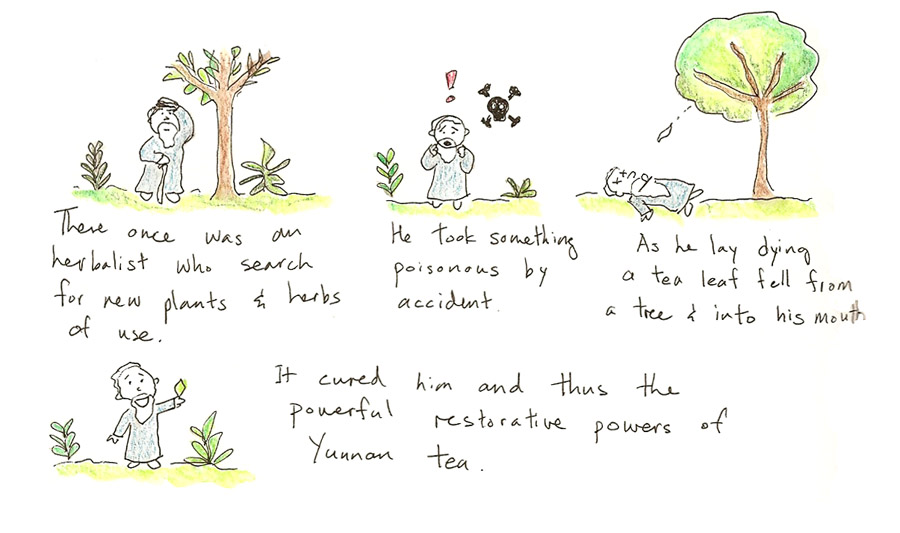 There once was an
herbalist who search
for new plants & herbs
of use.
He took something
poisonous by
accident.
As he lay dying
a tea leaf fell from
a tree & into his mouth
It cured him and thus the
powerful restorative powers of
Yunnan tea.